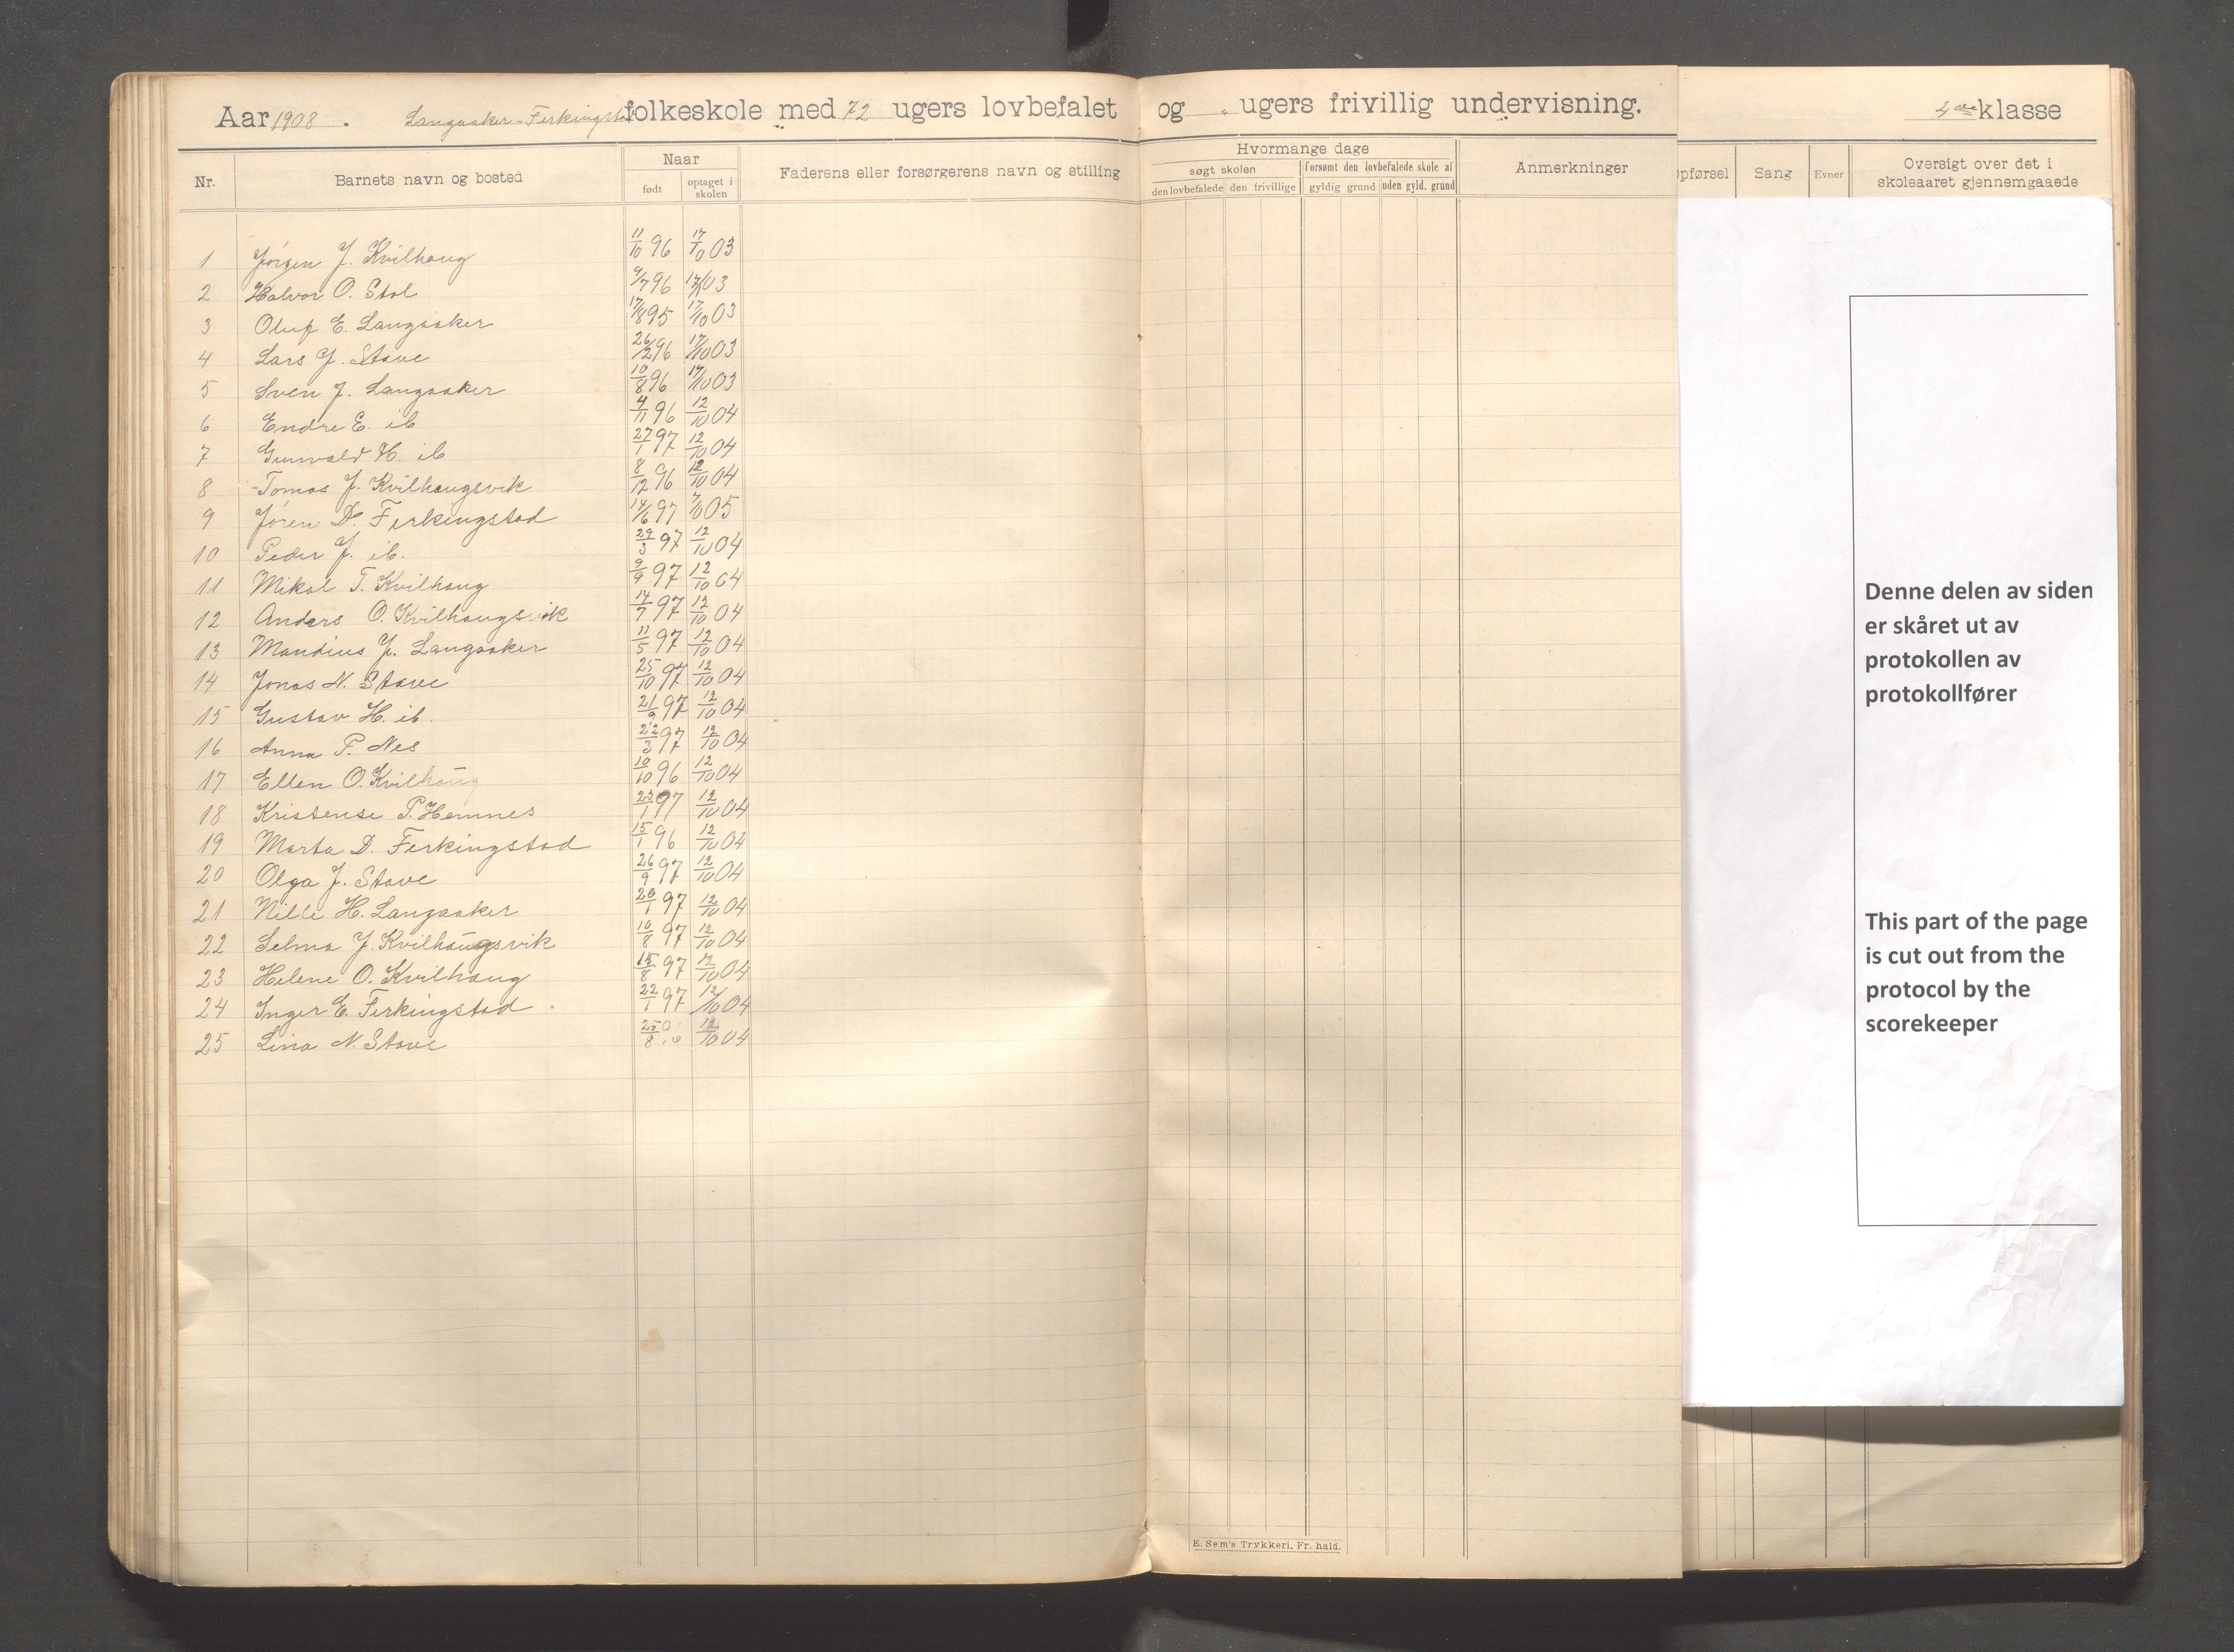 Aar 1908. Langaaker-Ferkingstad folkeskole med 72 ugers lovbefalet og " ugers frivillig undervisning. klasse
Nr. Barnets navn og bosted Naar født optaget i skolen Faderens eller forsørgerens navn og stilling
Hvormange dage
søgt skolen
den lovbefalede den frivillige
forsømt den lovbefalede skole af
gyldig grund uden gyld. grund
Anmerkninger
Sang Evner
Oversigt over det i skoleaaret gjennemgaaede
1 Jørgen J. Kvilhaug 11/10 96 17/10 03
2 Halvor O. Stol 9/7 96 03
3 Oluf E. Langaaker 17/8 95 17/10 03
4 Lars J. Stave 26/2 96 17/10 03
5 Sven J. Langaaker 10/8 96 17/10 03
6 Endre E. ib 4/11 96 12/10 04
7 Gunvald H. ib 27/1 97 12/10 04
8 Tomas J. Kvilhaugsvik 8/12 96 12/10 04
9 Jøren D. Ferkingstad 14/6 97 05
10 Peder J. ib. 29/3 97 12/10 04
11 Mikal T. Kvilhaug 9/9 97 12/10 04
12 Anders O. Kvilhaugsvik 14/7 97 12/10 04
13 Mandius J. Langaaker 11/5 97 12/10 04
14 Jonas N. Stave 25/10 97 12/10 04
15 Gustav H. ib. 21/9 97 12/10 04
16 Anna P. Nes 22/3 97 12/10 04
17 Ellen O. Kvilhaug 10/10 96 12/10 04
18 Kristense P. Hemnes 23/1 97 12/10 04
19 Marta D. Ferkingstad 15/1 96 12/10 04
20 Olga J. Stave 26/9 97 12/10 04
21 Nille H. Langaaker 20/1 97 12/10 04
22 Selma J. Kvilhaugsvik 10/8 97 12/10 04
23 Helene O. Kvilhaug 15/8 97 12/10 04
24 Inger E. Ferkingstad 22/1 97 12/10 04
25 Lina N. Stave 12/10 04
E. Sem's Trykkeri, Fr. hald.
Denne delen av siden
er skåret ut av
protokollen av
protokollfører
This part of the page
is cut out from the
protocol by the
scorekeeper